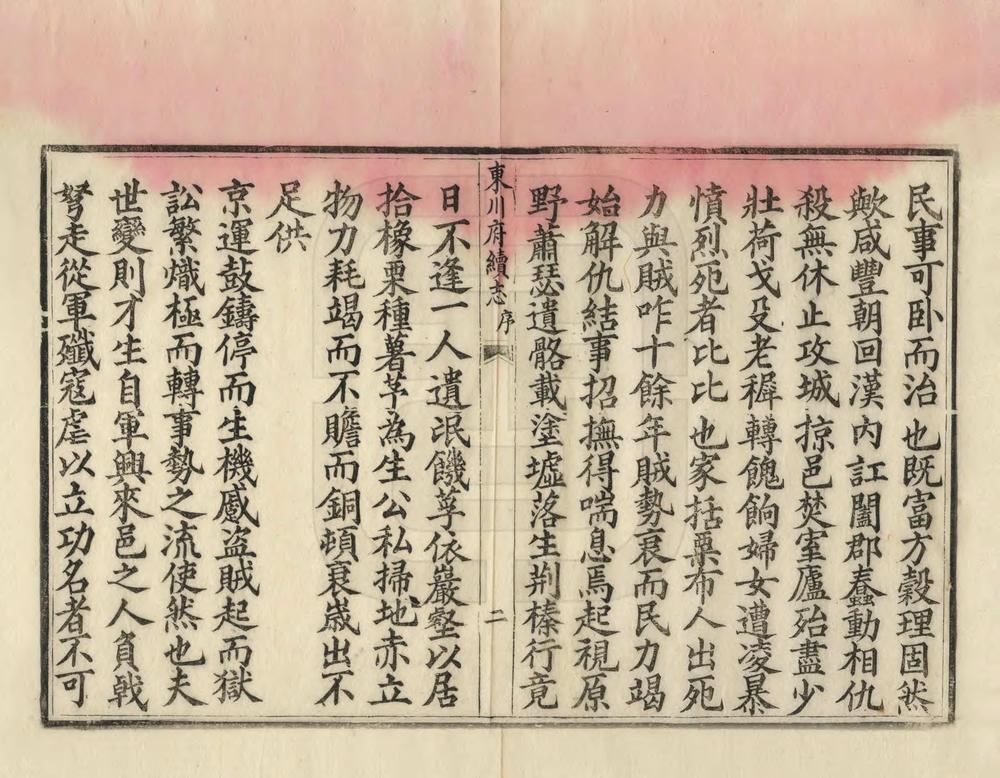 民事可卧而治也既富方穀理固然
歟咸豐朝回漢內訌闔郡蠢動相仇
殺無休止攻城掠邑焚室廬殆盡少
壯荷戈殳老穉轉餽餉婦女遭凌暴
憤烈死者比比也家括粟布人出死
力與賊咋十餘年賊勢衰而民力竭
始解仇結事招撫得喘息焉起視原
野蕭瑟遺骼載塗墟落生荆榛行竟
東川府續志 序 二
日不逢一人遺氓饑莩依巖壑以居
拾橡栗種薯芋為生公私掃地赤立
物力耗竭而不贍而銅頓衰歲出不
足供
京運鼓鑄停而生機蹙盜賊起而獄
訟繁熾極而轉事勢之流使然也夫
世變則才生自軍興來邑之人負戟
弩走從軍殲寇虐以立功名者不可